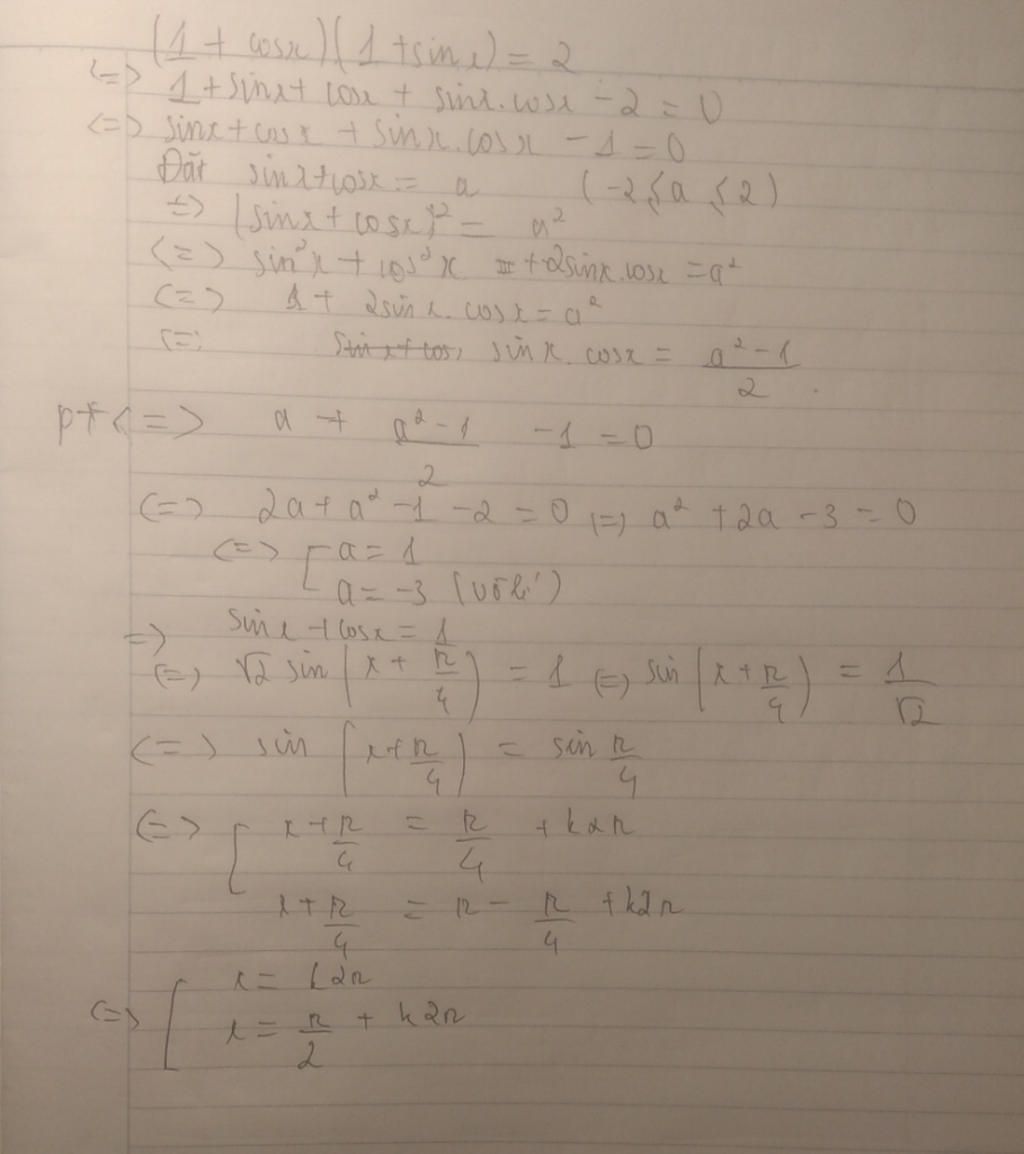 (1 + cosx)(1 + sinx) = 2
<=> 1 + sinx + cosx + sinx.cosx - 2 = 0
<=> sinx + cosx + sinx.cosx - 1 = 0
Đặt sinx + cosx = a (-2 ≤ a ≤ 2)
=> (sinx + cosx)² = a²
<=> sin²x + cos²x + 2sinx.cosx = a²
<=> 1 + 2sinx.cosx = a²
<=> sinx.cosx = (a² - 1)/2.
pt <=> a + (a² - 1)/2 - 1 = 0
<=> 2a + a² - 1 - 2 = 0 <=> a² + 2a - 3 = 0
<=> [ a = 1
a = -3 (vô lí)
=> sinx + cosx = 1
<=> √2 sin(x + π/4) = 1 <=> sin(x + π/4) = 1/√2
<=> sin(x + π/4) = sin π/4
<=> [ x + π/4 = π/4 + k2π
x + π/4 = π - π/4 + k2π
<=> [ x = k2π
x = π/2 + k2π